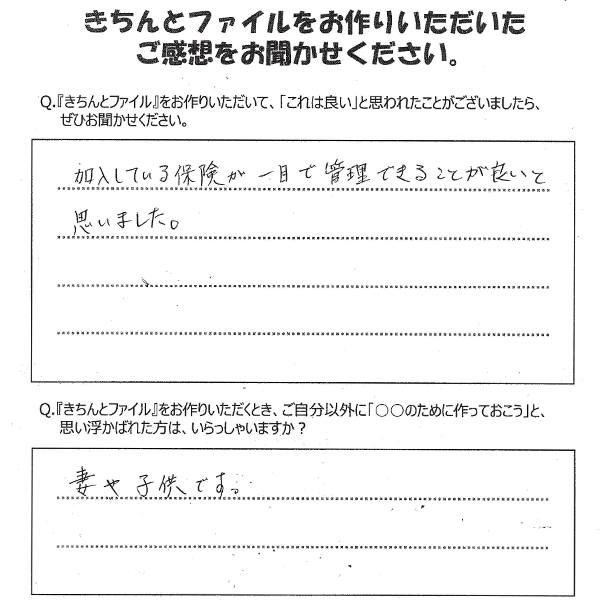 きちんとファイルをお作りいただいた
ご感想をお聞かせください。
Q.『きちんとファイル』をお作りいただいて、「これは良い」と思われたことがございましたら、
ぜひお聞かせください。
加入している保険が一目で管理できることが良いと
思いました。
Q.『きちんとファイル』をお作りいただくとき、ご自分以外に「〇〇のために作っておこう」と、
思い浮かばれた方は、いらっしゃいますか？
妻や子供です。